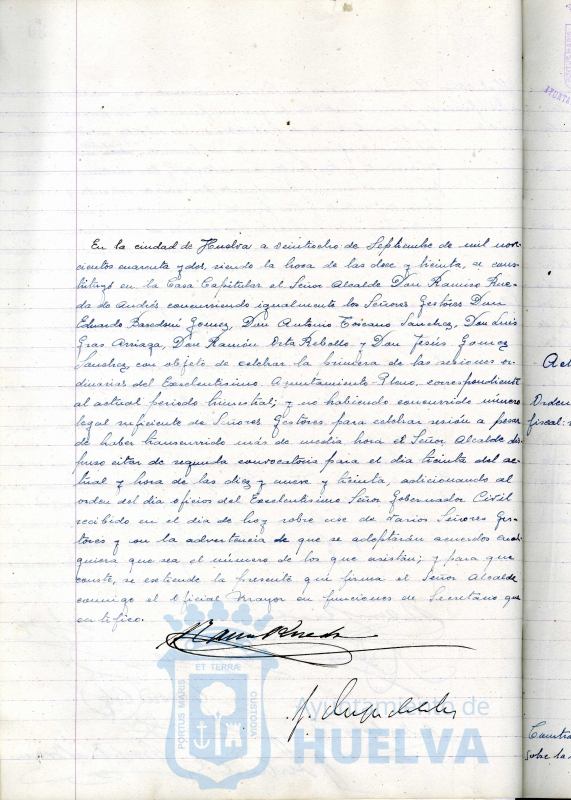 En la ciudad de Huelva a veintiocho de Septiembre de mil nove-
cientos cuarenta y dos, siendo la hora de las doce y treinta, se cons-
tituyó en la Casa Capitular el Señor Alcalde Don Ramiro Rue-
da de Andrés concurriendo igualmente los Señores Gestores Don
Eduardo Gomez, Don Antonio Toscano Sanchez, Don Luis
Gras Arriaga, Don Ramón Orta Rebollo y Don Jesús Gomez
Sanchez, con objeto de celebrar la primera de las sesiones or-
dinarias del Excelentisimo Ayuntamiento Pleno, correspondiente
al actual periodo trimestral; y no habiendo concurrido número
legal suficiente de Señores Gestores para celebrar sesión a pesar
de haber transcurrido más de media hora el Señor Alcalde dis-
puso citar de segunda convocatoria para el dia treinta del ac-
tual y hora de las diez y nueve y treinta, adicionando al
orden del dia oficios del Excelentisimo Señor Gobernador Civil
recibido en el dia de hoy sobre cese de varios Señores Ges-
tores y con la advertencia de que se adoptarán acuerdos cual-
quiera que sea el número de los que asistan; y para que
conste, se extiende la presente que firma el Señor Alcalde
conmigo el Oficial Mayor en funciones de Secretario que
certifico.
ET TERRÆ
PORTUS MARIS
CUSTODIA
Ayuntamiento de
HUELVA
Orden
fiscal:
sobre la